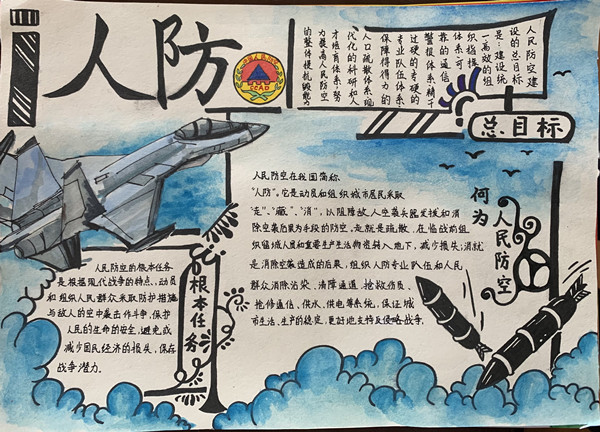 人防
中国人民防空
CCAD
人民防空建
设的总目标
是:建设统
一高效的组
织指挥
体系,可
靠的通信
警报体系精干
过硬的专硬的
专业队伍体系,
保障得得力的
人口疏散体系现
代化的科研和人
才培育体系,努
力提高人民防空
的整体
总目标
何为
人民防空
人民防空在我国简称
“人防”。它是动员和组织城市居民采取
“走”、“藏”、“消”,以阻障敌人空袭兵器发挥和消
除空袭后果为手段的防空,走就是疏散,在临战前组
织临城人员和重要生产生活物资转入地下,减少损失;消就
是消除空袭造成的后果,组织人防专业队伍和人民
群众消除沾染、清障通道、抢救伤员、
抢修通信、供水、供电等系统,保证城
市生活、生产的稳定,更好地支持反侵略战争。
根本任务
人民防空的根本任务
是根据现代战争的特点,动员
和组织人民群众采取防护措施
与敌人的空中袭击作斗争,保护
人民的生命的安全,避免或
减少国民经济的损失,保存
战争潜力。